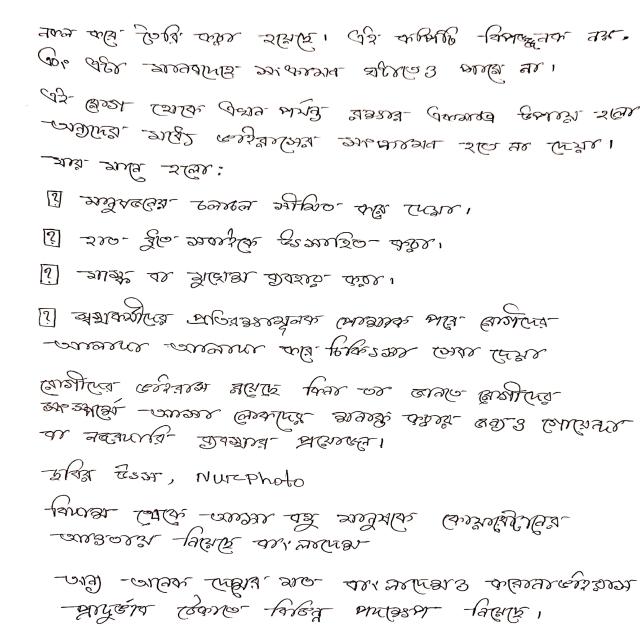 নকল করে তৈরি করা হয়েছে। এই কপিটি বিপজ্জনক নয়,
এবং এটা মানবদেহে সংক্রমণ ঘটাতেও পারে না।
এই রোগ থেকে এখন পর্যন্ত রক্ষার একমাত্র উপায় হলো
অন্যদের মধ্যে ভাইরাসের সংক্রমণ হতে না দেয়া।
যার মানে হলো:
? মানুষজনের চলাচল সীমিত করে দেয়া।
? হাত ধুতে সবাইকে উৎসাহিত করা।
? মাস্ক বা মুখোশ ব্যবহার করা।
? স্বাস্থ্যকর্মীদের প্রতিরক্ষামূলক পোশাক পরে রোগীদের
আলাদা আলাদা করে চিকিৎসা সেবা দেয়া
রোগীদের ভাইরাস রয়েছে কিনা তা জানতে রোগীদের
সংস্পর্শে আসা লোকদের সনাক্ত করার জন্যও গোয়েন্দা
বা নজরদারি ব্যবস্থার প্রয়োজন।
ছবির উৎস, NurPhoto
বিদেশ থেকে আসা বহু মানুষকে কোয়ারেন্টিনের
আওতায় নিয়েছে বাংলাদেশ
অন্য অনেক দেশের মত বাংলাদেশও করোনাভাইরাস
প্রাদুর্ভাব ঠেকাতে বিভিন্ন পদক্ষেপ নিয়েছে।